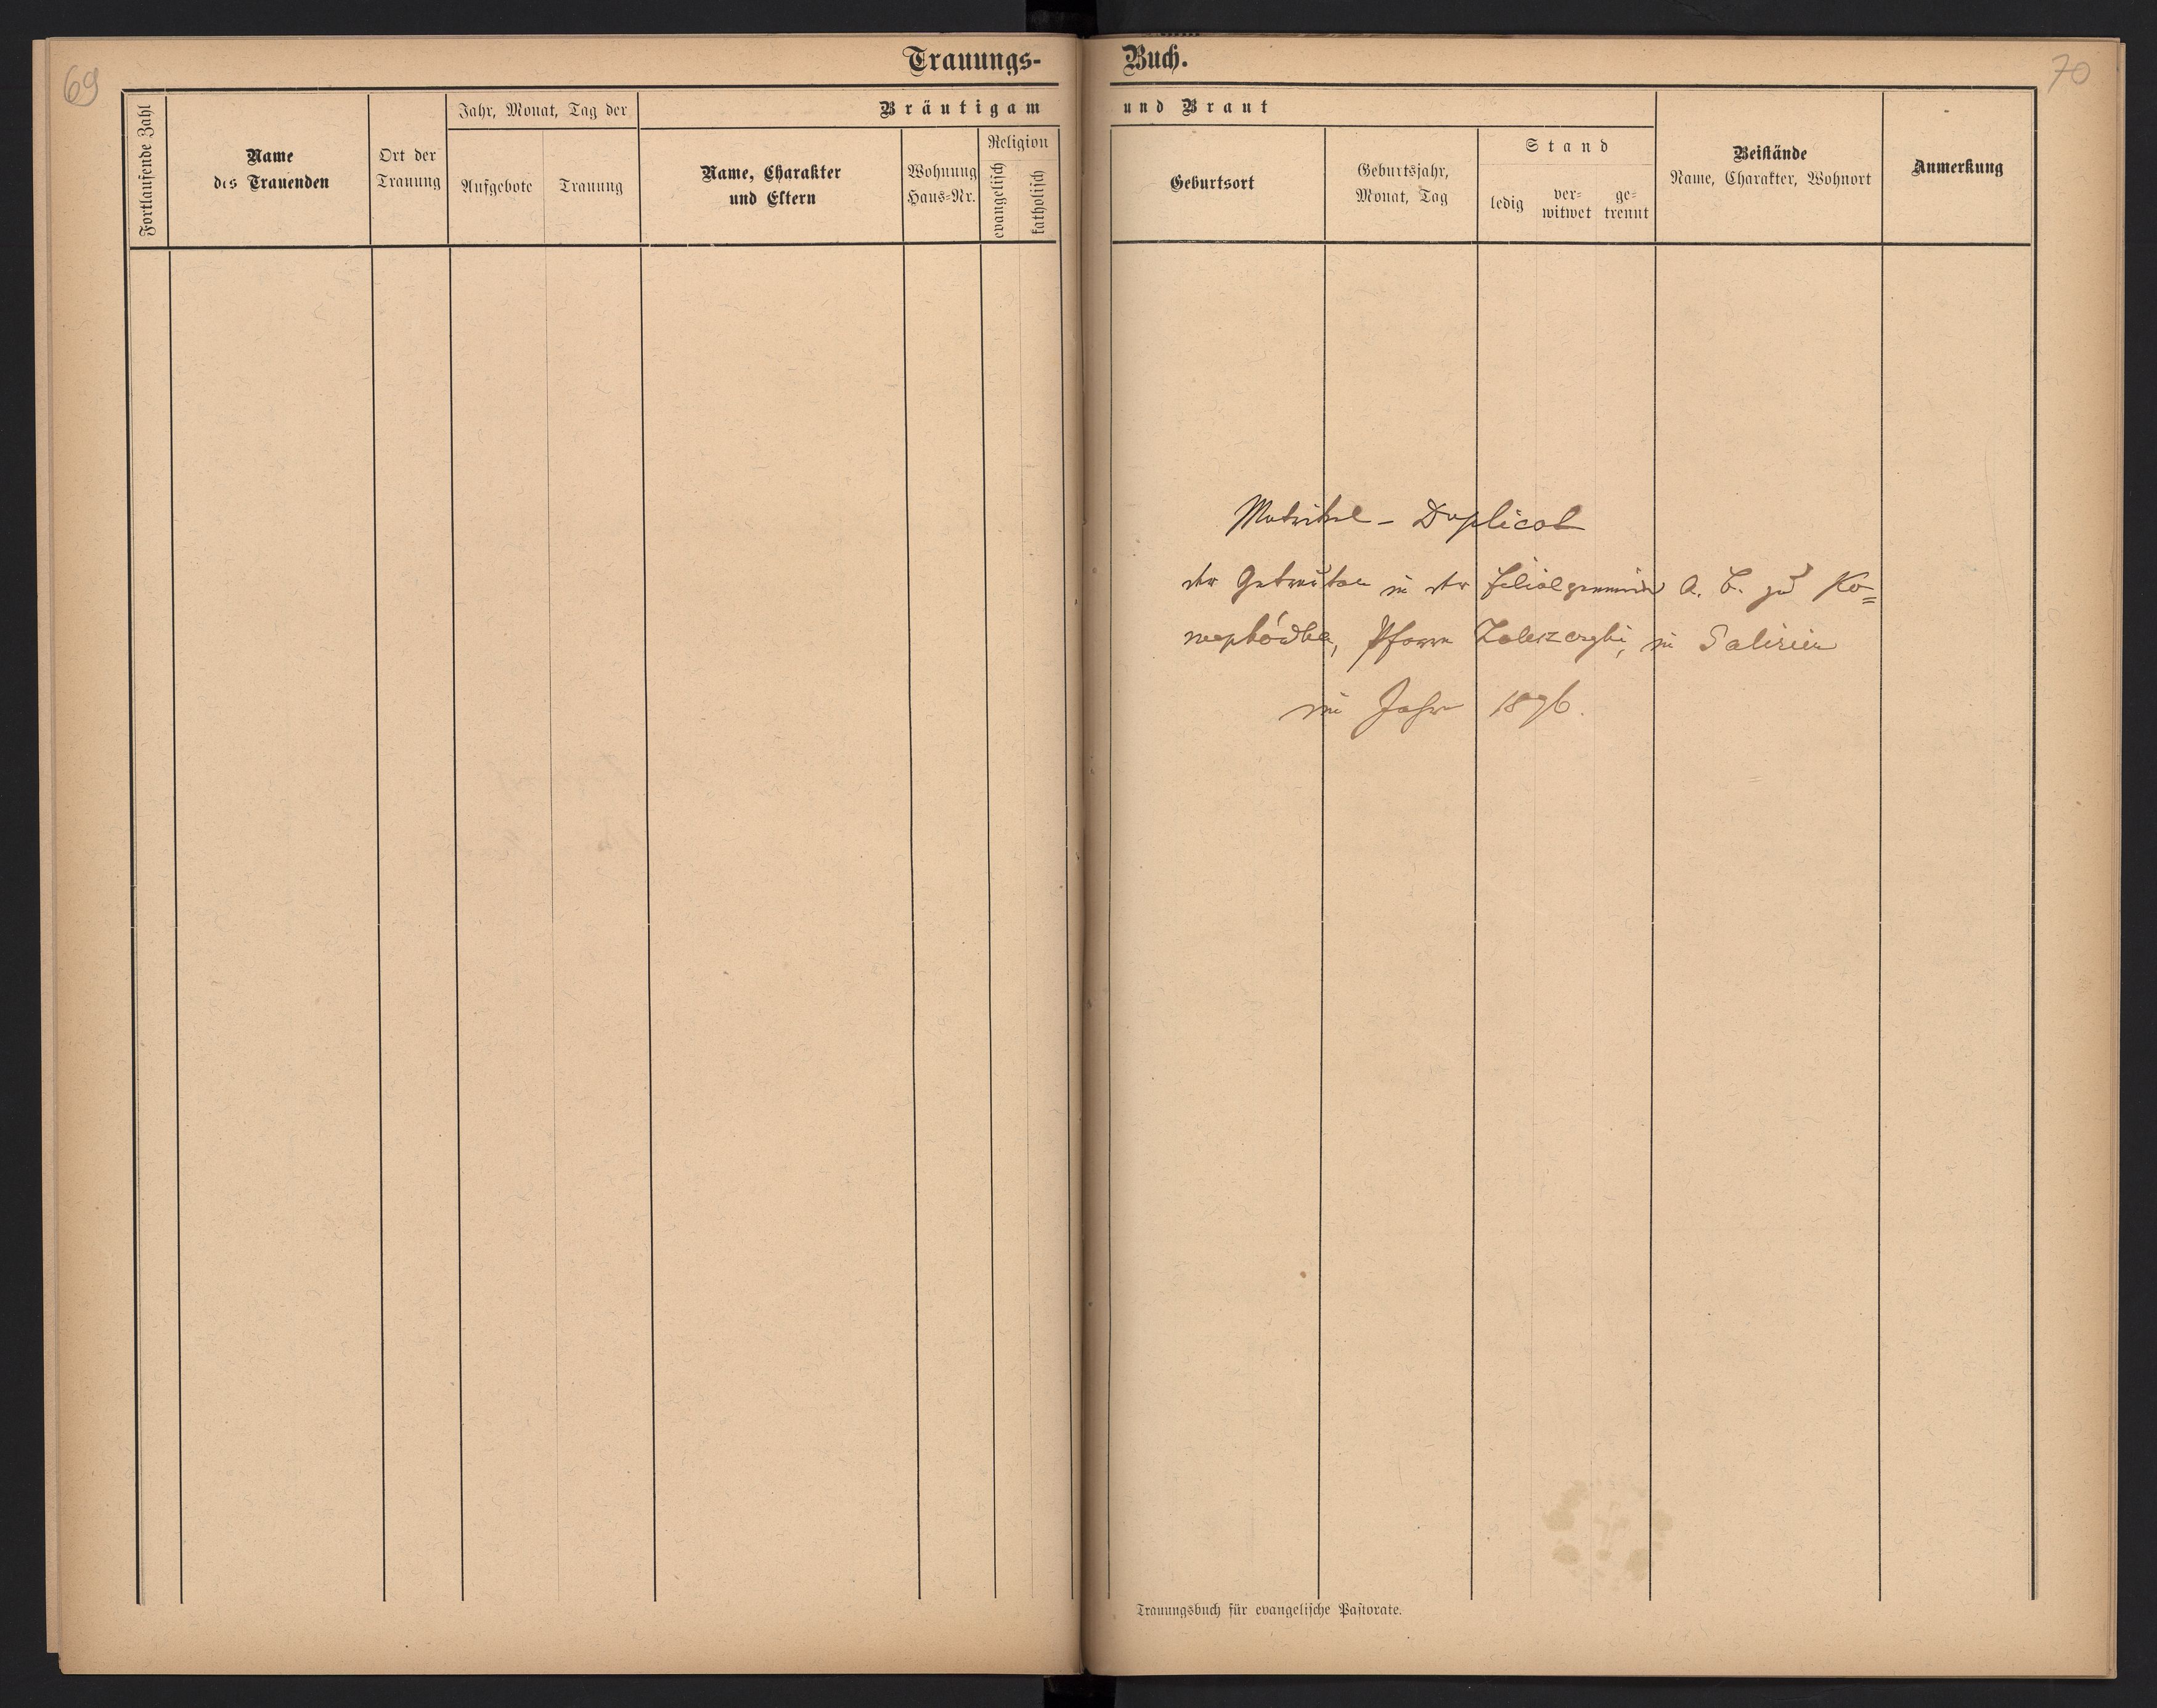 69
Trauungs-
Fortlaufende Zahl
Name
des Trauenden
Ort der
Trauung
Jahr, Monat, Tag der
Aufgebote
Trauung
Bräutigam
Name, Charakter
und Eltern
Wohnung
Haus=Nr.
Religion
evangelisch
katholisch
70
Buch.
und Braut
Geburtsort
Geburtsjahr,
Monat, Tag
Stand
ledig
ver-
witwet
ge-
trennt
Beistände
Name, Charakter, Wohnort
Anmerkung
Matrikel - Duplicat
der Getrauten in der Filialgemeinde A. C. zu Ko=
nopkówka, Pfarre Zaleszczyki, in Galizien
im Jahre 1896.
Trauungsbuch für evangelische Pastorate.